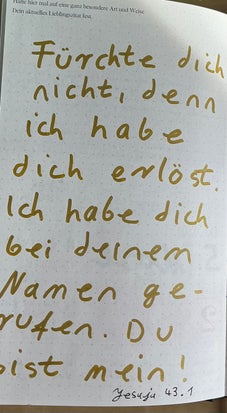 Halte hier mal auf eine ganz besondere Art und Weise
Dein aktuelles Lieblingszitat fest.
Fürchte dich
nicht, denn
ich habe
dich erlöst.
Ich habe dich
bei deinem
Namen ge-
rufen. Du
bist mein!
Jesaja 43.1